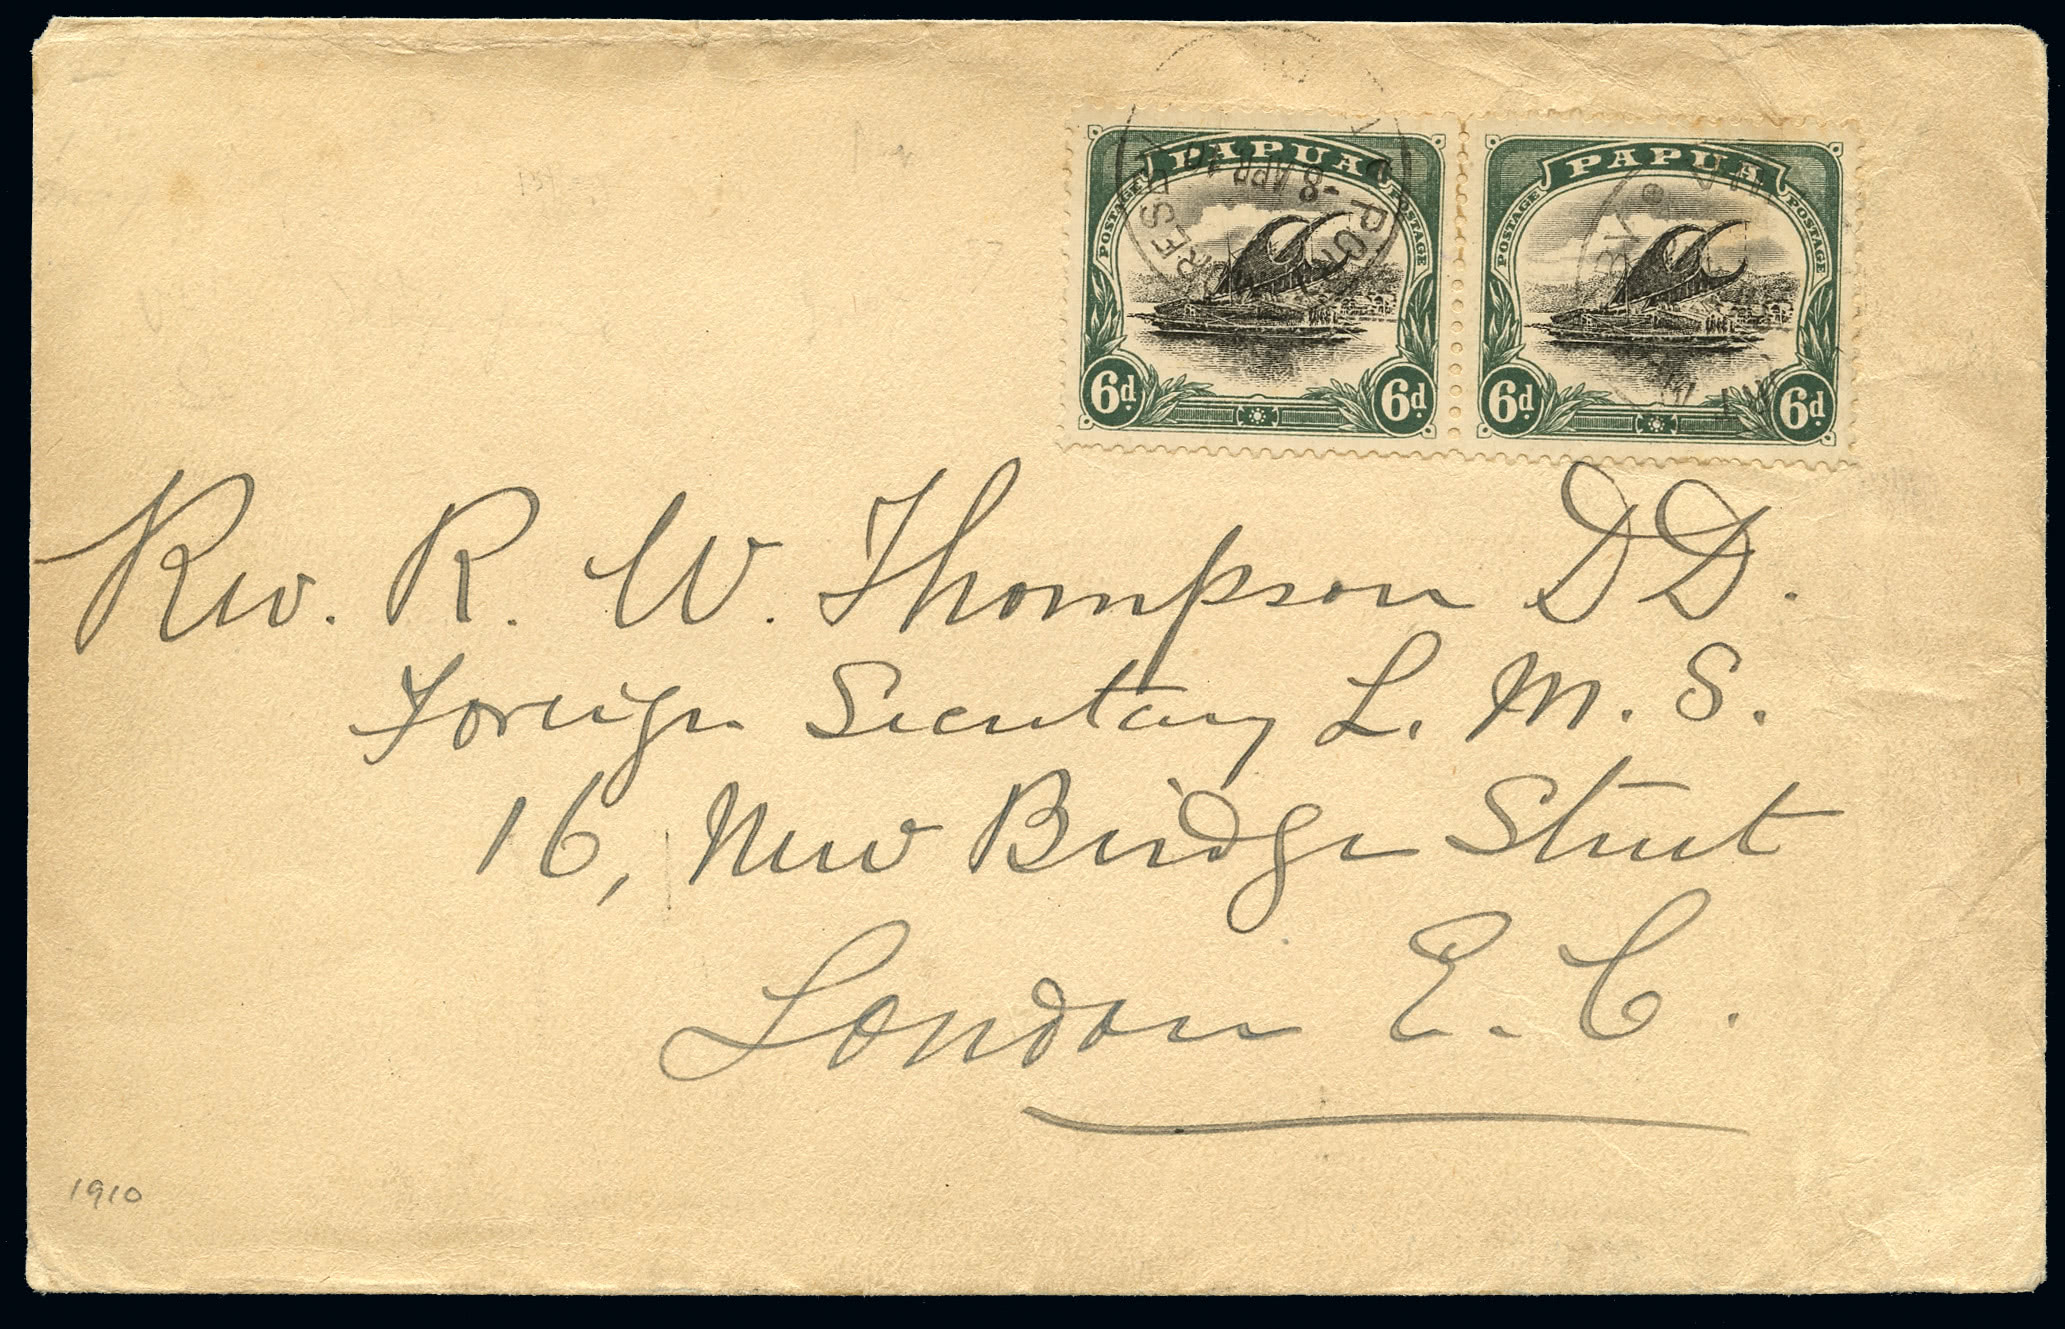 PAPUA PAPUA
POSTAGE POSTAGE POSTAGE POSTAGE
PORT RESBY
8 APR
6d. 6d. 6d. 6d.
Rev. R. W. Thompson DD.
Foreign Secretary L. M. S.
16, New Bridge Street
London E. C.
1910